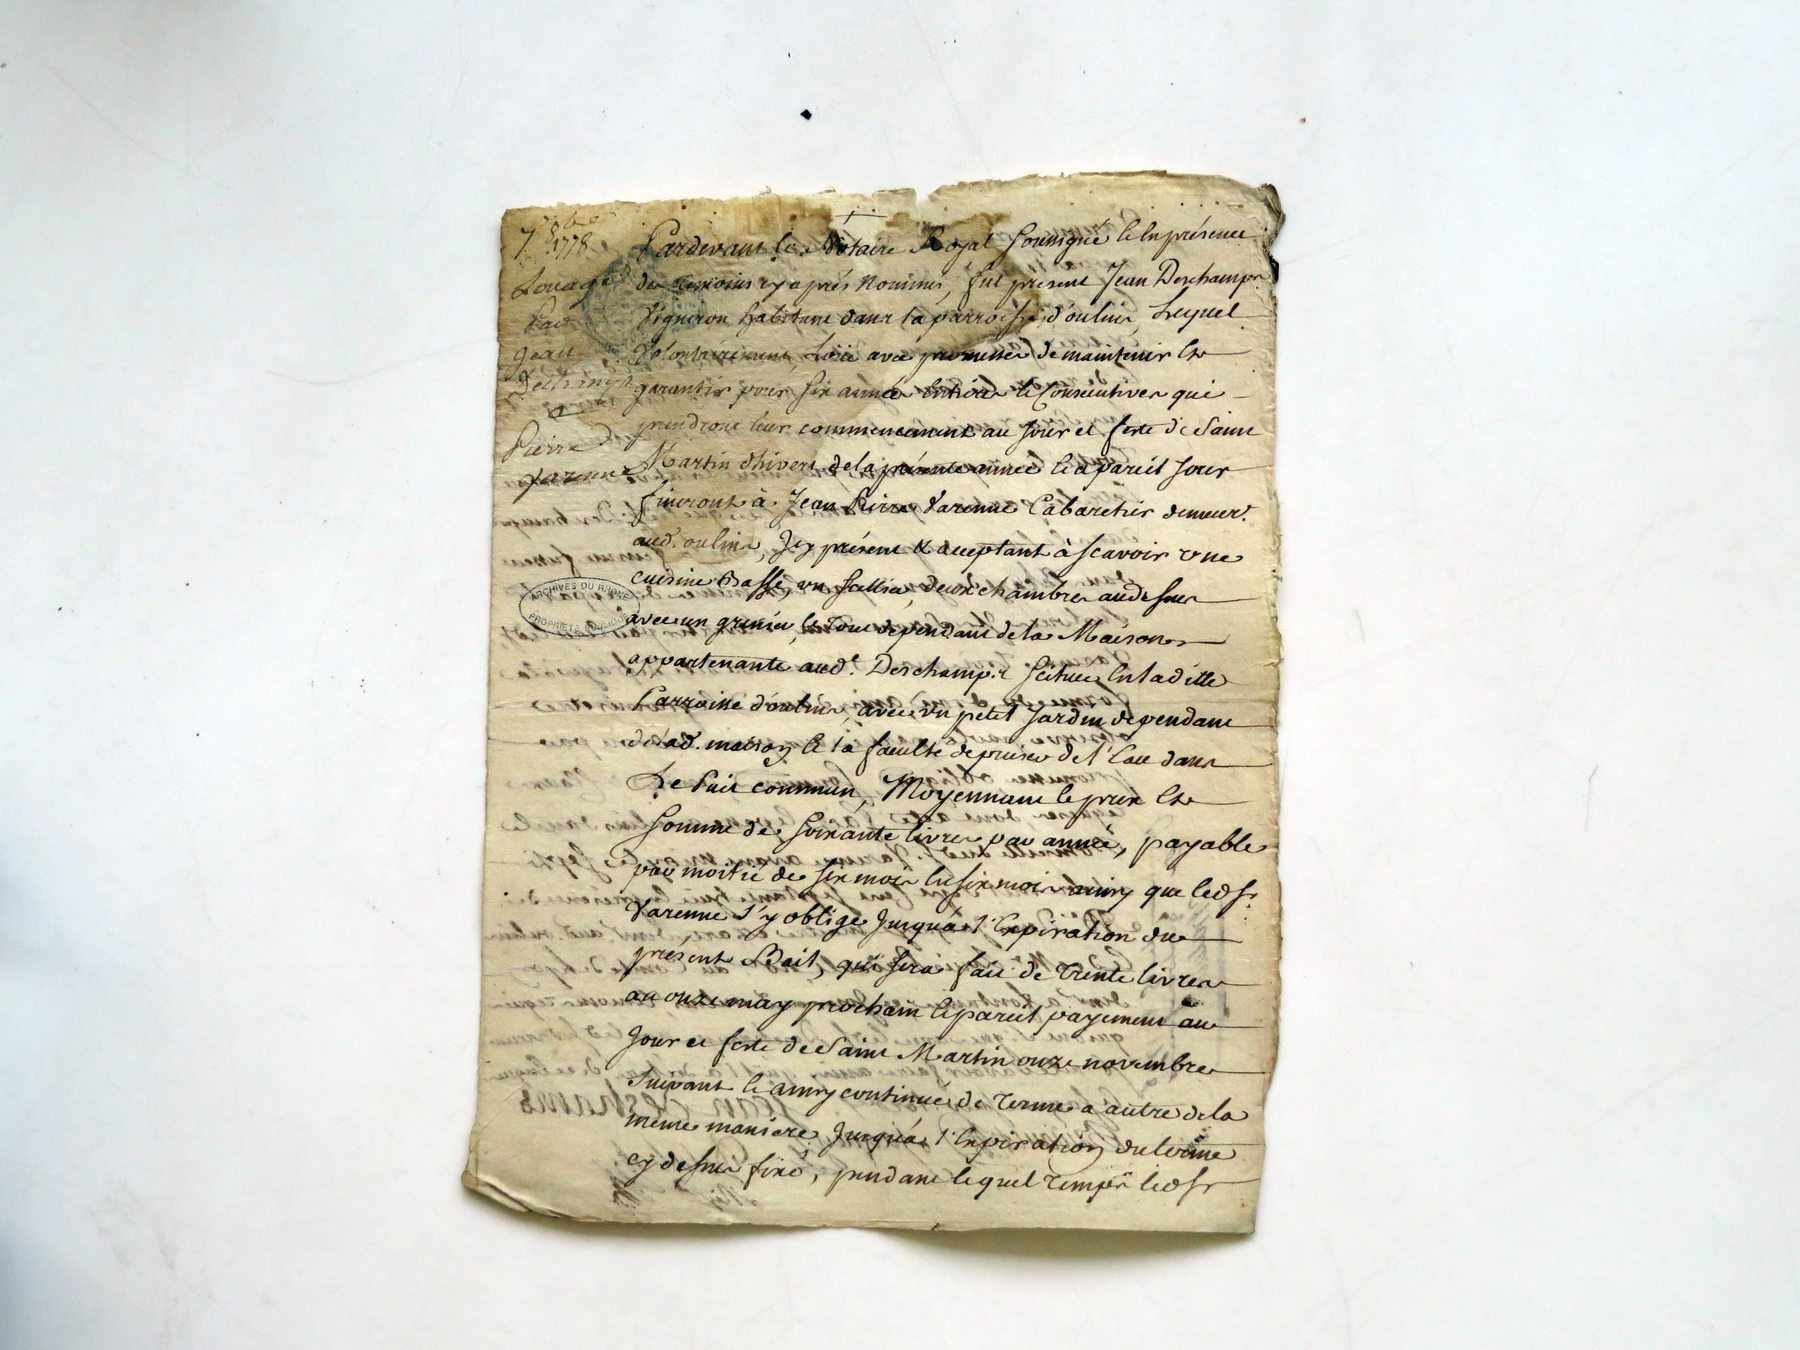 7 8bre
1778
Louage
Par
Jean
Deschamps
a
Pierre
Varenne
Pardevant le Notaire Royal Soussigné & en présence
des temoins cy après Nommés, fut present Jean Deschamps
Vigneron habitant dans la parroisse d'oulins, Lequel
Volontairement, Loüe avec promesse de maintenir &
garantir pour six années entieres & Consecutives qui
prendront leur commencement au Jour et feste de Saint
Martin d'hivert de la présente année & a pareil Jour
finiront à Jean Pierre Varenne Cabaretier demeurt.
aud. oulins, Icy présent & acceptant àscavoir une
cuisine Basse, un sellier, deux chambres audessus
avec un grenier, le Tout dependant de la Maison
appartenante aud.t Deschamps scituée en laditte
Parroisse d'oulins, avec un petit Jardin dependant
de lad. maison & la faculté de puiser de l'Eau dans
Le Puit commun, Moyennant le prix &
Somme de soixante livres par année, payable
par moitié de six mois en six mois ainsy que led. Sr.
Varenne s'y oblige Jusqu'à l'Expiration du
présent Bail, qui sera fait de Trente livres
au onze may prochain & pareil payement au
Jour et feste de Saint Martin onze novembre
suivant & ainsy continué de Terme a autre de la
même maniere Jusqu'à l'Expiration du terme
cy dessus fixé, pendant lequel Temps led. Sr
ARCHIVES DU RHONE
PROPRIETE PUBLIQUE